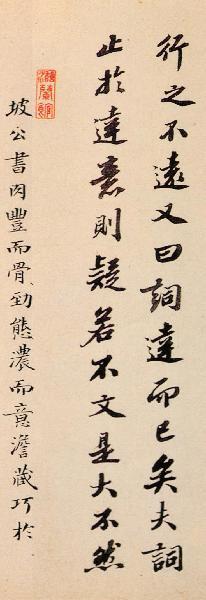 行之不遠又曰詞達而已矣夫詞
止於達意則疑若不文是大不然
坡公書肉豐而骨勁態濃而意澹藏巧於